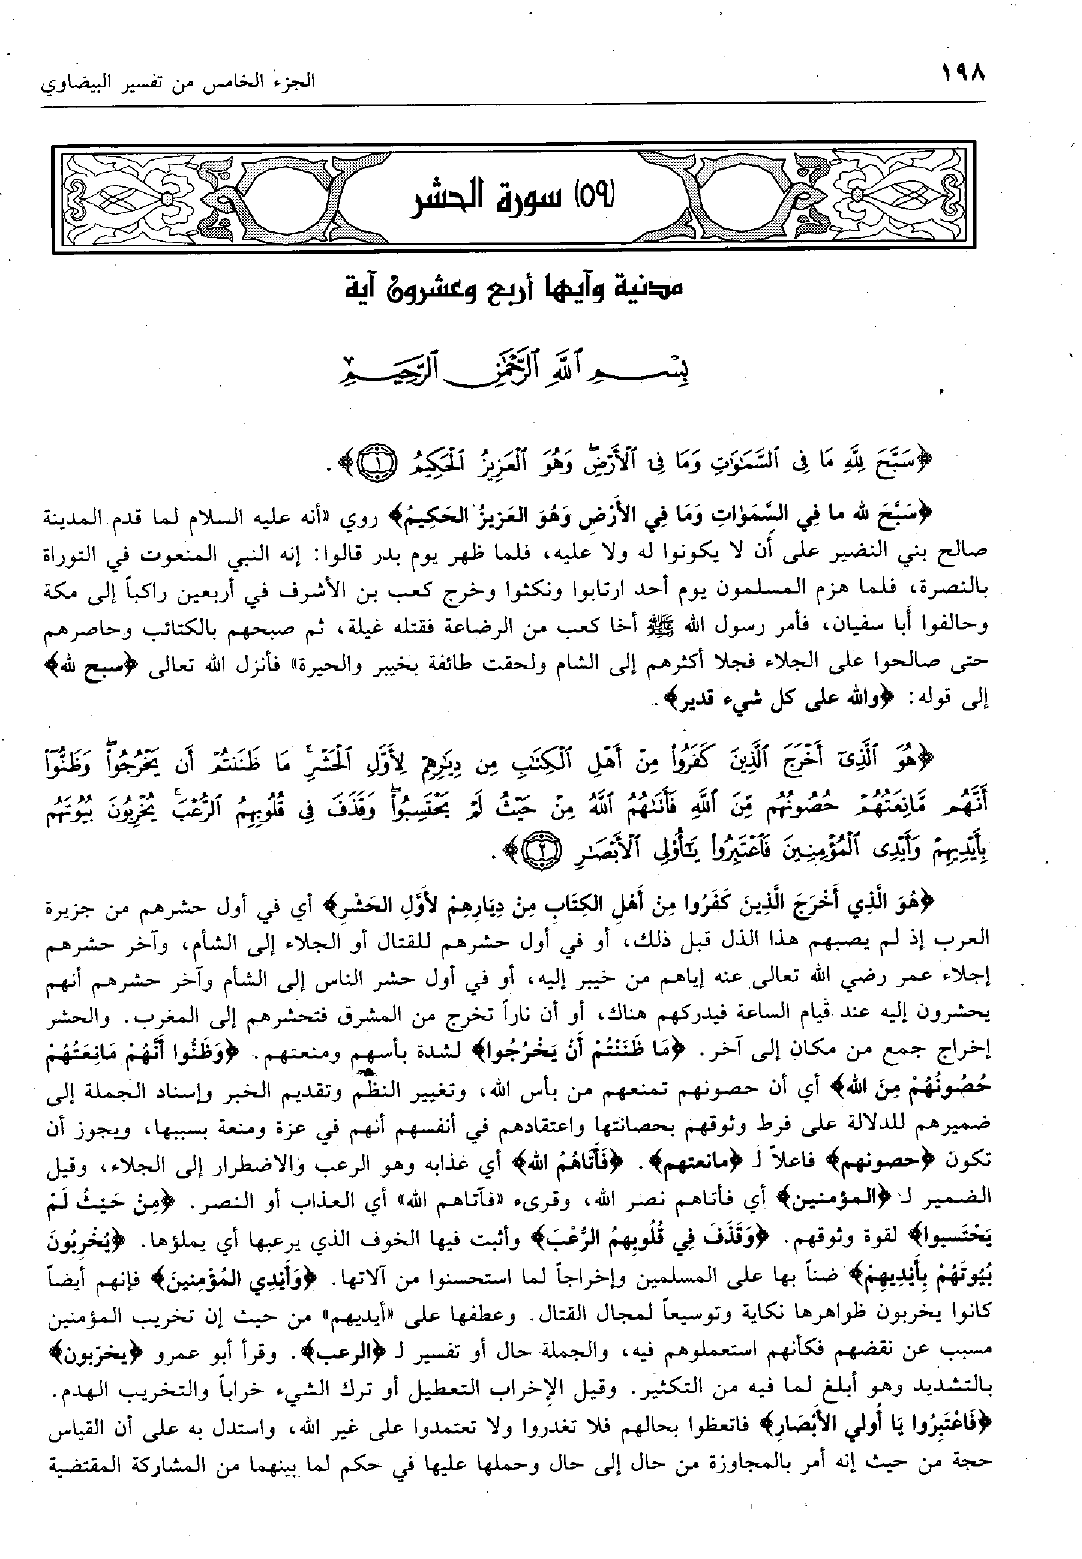 ١٩٨
الجزء الخامس من تفسير البيضاوي
(٥٩) سورة الحشر
مدنية وآيها أربع وعشرون آية
بِسْمِ ٱللَّهِ ٱلرَّحْمَٰنِ ٱلرَّحِيمِ
﴿سَبَّحَ لِلَّهِ مَا فِى ٱلسَّمَٰوَٰتِ وَمَا فِى ٱلْأَرْضِ ۖ وَهُوَ ٱلْعَزِيزُ ٱلْحَكِيمُ ۝١﴾.
﴿سَبَّحَ لله ما فِي السَّمَوَاتِ وَمَا فِي الأَرْضِ وَهُوَ العَزِيزُ الحَكِيمُ﴾ روي «أنه عليه السلام لما قدم المدينة
صالح بني النضير على أن لا يكونوا له ولا عليه، فلما ظهر يوم بدر قالوا: إنه النبي المنعوت في التوراة
بالنصرة، فلما هزم المسلمون يوم أحد ارتابوا ونكثوا وخرج كعب بن الأشرف في أربعين راكباً إلى مكة
وحالفوا أبا سفيان، فأمر رسول الله ﷺ أخا كعب من الرضاعة فقتله غيلة، ثم صبحهم بالكتائب وحاصرهم
حتى صالحوا على الجلاء فجلا أكثرهم إلى الشام ولحقت طائفة بخيبر والحيرة» فأنزل الله تعالى ﴿سبح لله﴾
إلى قوله: ﴿والله على كل شيء قدير﴾.
﴿هُوَ ٱلَّذِىٓ أَخْرَجَ ٱلَّذِينَ كَفَرُوا۟ مِنْ أَهْلِ ٱلْكِتَٰبِ مِن دِيَٰرِهِمْ لِأَوَّلِ ٱلْحَشْرِ ۚ مَا ظَنَنتُمْ أَن يَخْرُجُوا۟ ۖ وَظَنُّوٓا۟
أَنَّهُم مَّانِعَتُهُمْ حُصُونُهُم مِّنَ ٱللَّهِ فَأَتَىٰهُمُ ٱللَّهُ مِنْ حَيْثُ لَمْ يَحْتَسِبُوا۟ ۖ وَقَذَفَ فِى قُلُوبِهِمُ ٱلرُّعْبَ ۚ يُخْرِبُونَ بُيُوتَهُم
بِأَيْدِيهِمْ وَأَيْدِى ٱلْمُؤْمِنِينَ فَٱعْتَبِرُوا۟ يَٰٓأُو۟لِى ٱلْأَبْصَٰرِ ۝٢﴾.
﴿هُوَ الَّذِي أَخْرَجَ الَّذِينَ كَفَرُوا مِنْ أَهْلِ الكِتَابِ مِنْ دِيَارِهِمْ لأَوَّلِ الحَشْرِ﴾ أي في أول حشرهم من جزيرة
العرب إذ لم يصبهم هذا الذل قبل ذلك، أو في أول حشرهم للقتال أو الجلاء إلى الشأم، وآخر حشرهم
إجلاء عمر رضي الله تعالى عنه إياهم من خيبر إليه، أو في أول حشر الناس إلى الشأم وآخر حشرهم أنهم
يحشرون إليه عند قيام الساعة فيدركهم هناك، أو أن ناراً تخرج من المشرق فتحشرهم إلى المغرب. والحشر
إخراج جمع من مكان إلى آخر. ﴿مَا ظَنَنْتُمْ أَنْ يَخْرُجُوا﴾ لشدة بأسهم ومنعتهم. ﴿وَظَنُّوا أَنَّهُمْ مَانِعَتُهُمْ
حُصُونُهُمْ مِنَ الله﴾ أي أن حصونهم تمنعهم من بأس الله، وتغيير النظم وتقديم الخبر وإسناد الجملة إلى
ضميرهم للدلالة على فرط وثوقهم بحصانتها واعتقادهم في أنفسهم أنهم في عزة ومنعة بسببها، ويجوز أن
تكون ﴿حصونهم﴾ فاعلاً لـ ﴿مانعتهم﴾. ﴿فَأَتَاهُمُ الله﴾ أي عذابه وهو الرعب والاضطرار إلى الجلاء، وقيل
الضمير لـ ﴿المؤمنين﴾ أي فأتاهم نصر الله، وقرىء «فآتاهم الله» أي العذاب أو النصر. ﴿مِنْ حَيْثُ لَمْ
يَحْتَسِبوا﴾ لقوة وثوقهم. ﴿وَقَذَفَ فِي قُلُوبِهِمُ الرُّعْبَ﴾ وأثبت فيها الخوف الذي يرعبها أي يملؤها. ﴿يُخْرِبُونَ
بُيُوتَهُمْ بِأَيْدِيهِمْ﴾ ضناً بها على المسلمين وإخراجاً لما استحسنوا من آلاتها. ﴿وَأَيْدِي المُؤْمِنِينَ﴾ فإنهم أيضاً
كانوا يخربون ظواهرها نكاية وتوسيعاً لمجال القتال. وعطفها على «أيديهم» من حيث إن تخريب المؤمنين
مسبب عن نقضهم فكأنهم استعملوهم فيه، والجملة حال أو تفسير لـ ﴿الرعب﴾. وقرأ أبو عمرو ﴿يخرّبون﴾
بالتشديد وهو أبلغ لما فيه من التكثير. وقيل الإخراب التعطيل أو ترك الشيء خراباً والتخريب الهدم.
﴿فَاعْتَبِرُوا يَا أُولي الأَبْصَارِ﴾ فاتعظوا بحالهم فلا تغدروا ولا تعتمدوا على غير الله، واستدل به على أن القياس
حجة من حيث إنه أمر بالمجاوزة من حال إلى حال وحملها عليها في حكم لما بينهما من المشاركة المقتضية